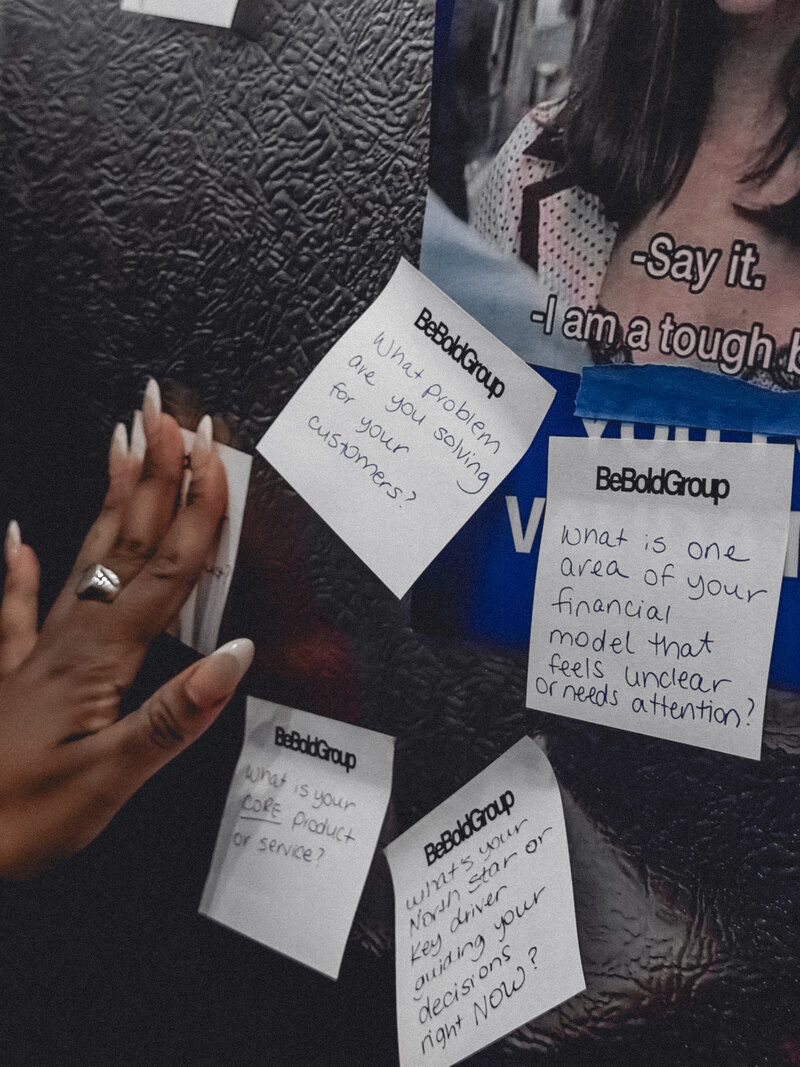 -Say it.
-I am a tough b
BeBoldGroup
What problem
are you solving
for your
customers?
BeBoldGroup
What is one
area of your
financial
model that
feels unclear
or needs attention?
BeBoldGroup
What is your
CORE product
or service?
BeBoldGroup
What's your
North Star or
key driver
guiding your
decisions
right NOW?